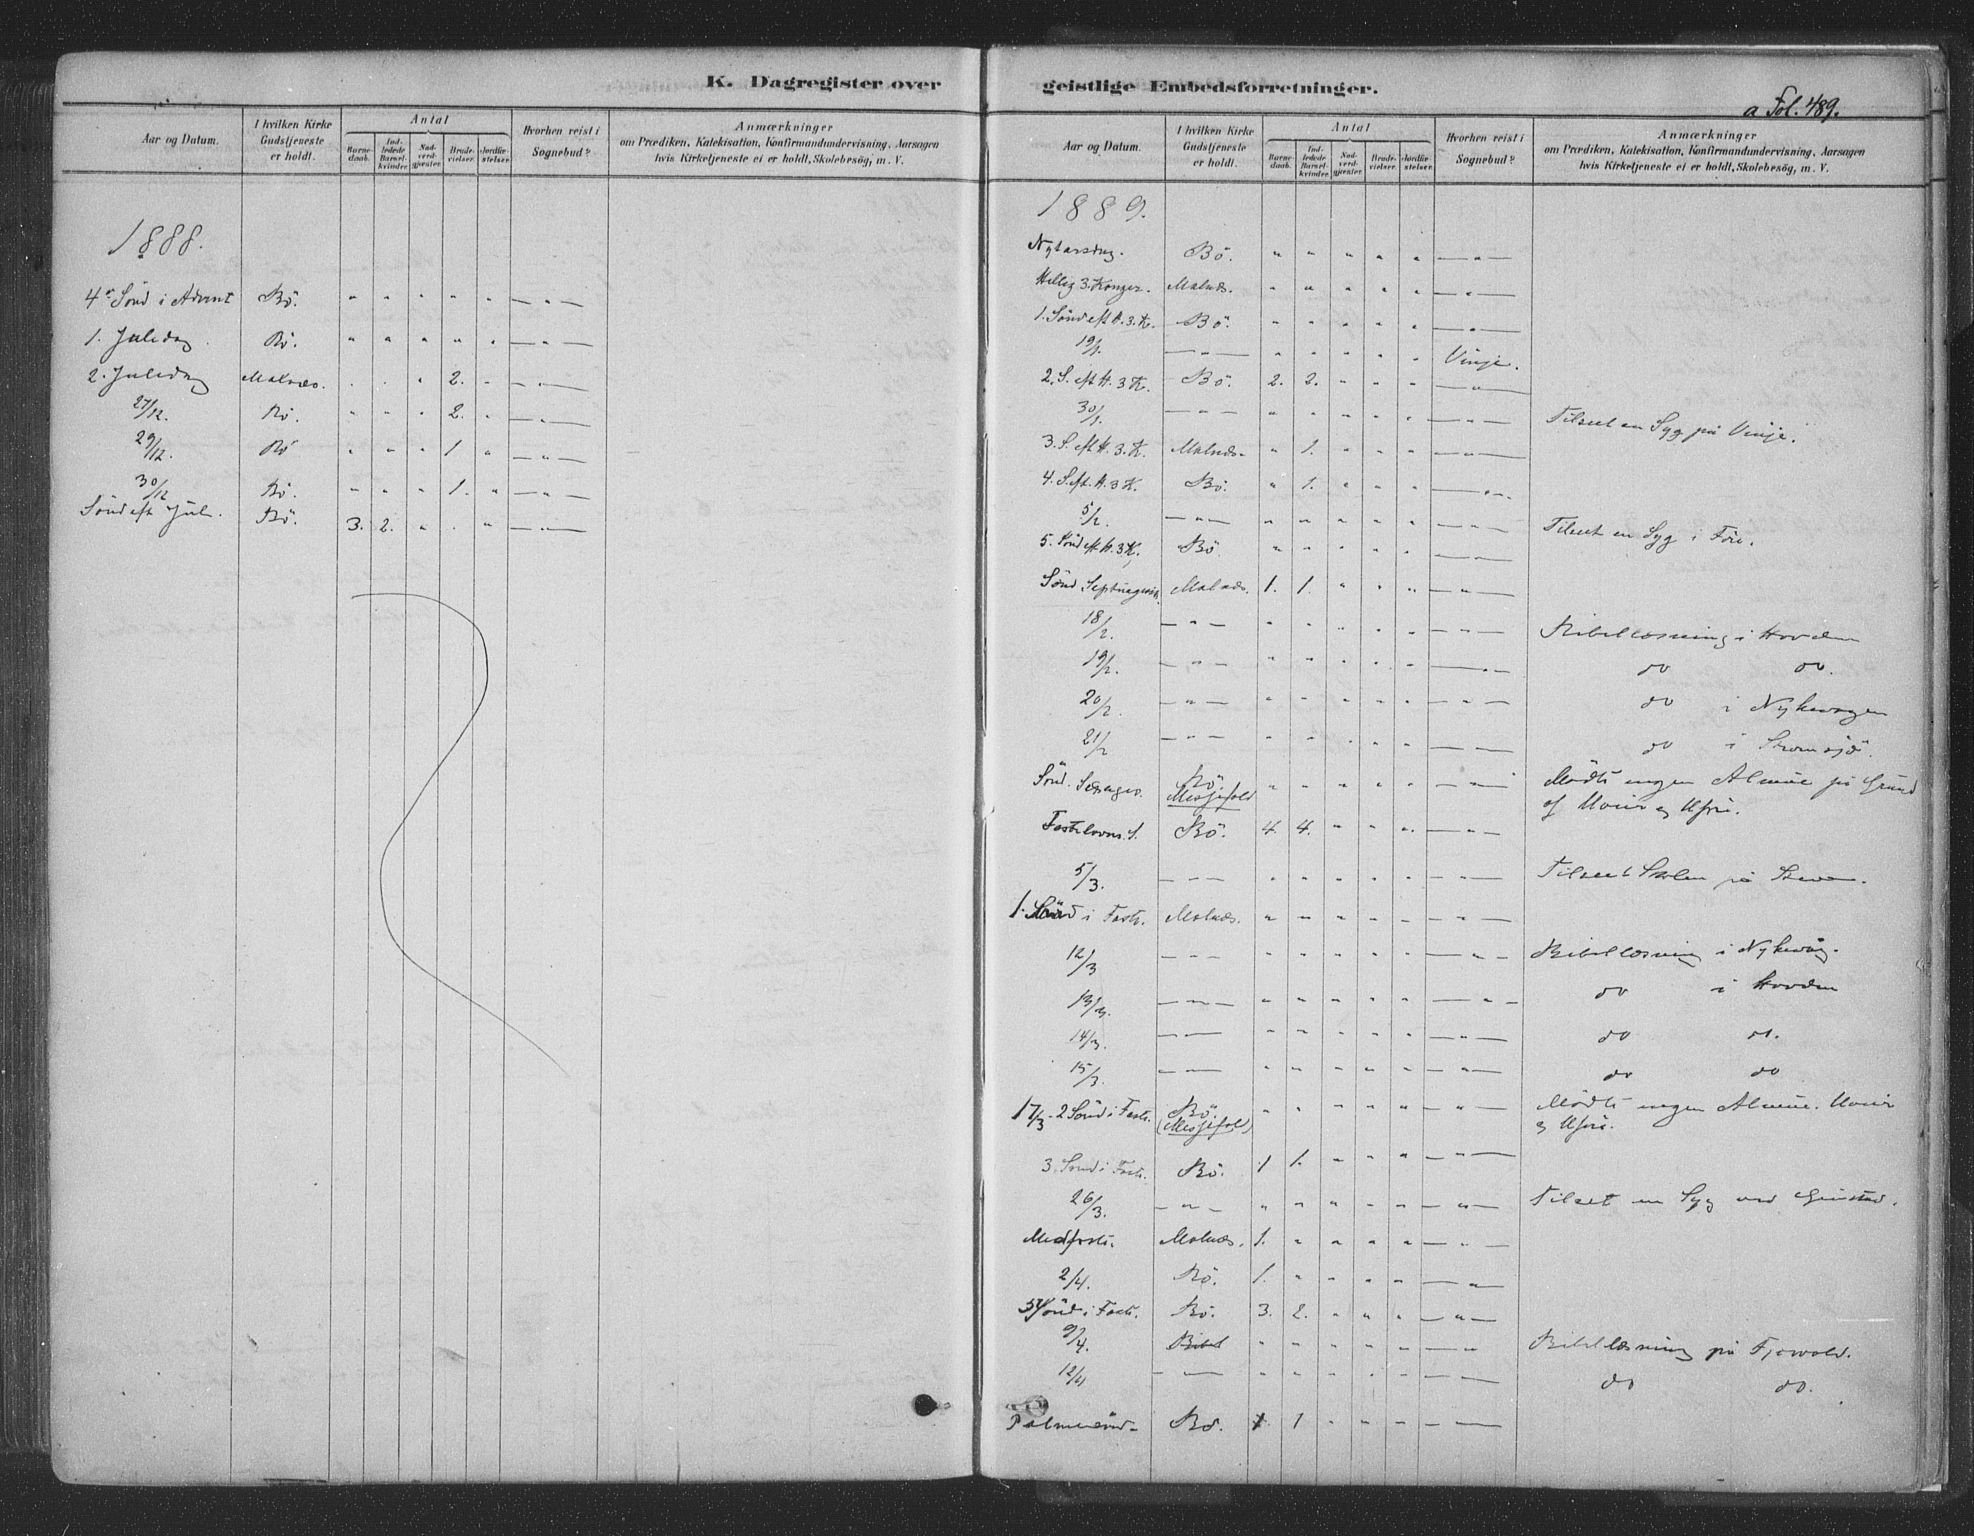 K. Dagregister over
Aar og Datum.
I hvilken Kirke Gudstjeneste er holdt.
Antal
Barnedaab.
Indledede Barselkvinder.
Nadverdgjester.
Brudevielser.
Jordfæstelser.
Hvorhen reist i Sognebud?
Anmærkninger
om Prædiken, Katekisation, Konfirmandundervisning, Aarsagen
hvis Kirketjeneste ei er holdt, Skolebesög, m. V.
1888.
4de Sönd i Advent Bö. " " " " " — " —
1. Juledag Bö. " " " " " — " —
2. Juledag Malnæs. . . " 2. " — " —
27/12. Bö. " " " 2. " — " —
29/12. Bö " " " 1 " — " —
30/12 Bö. " " " 1. " — " —
Sönd eft Jul. Bö. 3. 2. " . " — " —
geistlige Embedsforretninger.
a Fol. 489.
Aar og Datum.
I hvilken Kirke Gudstjeneste er holdt.
Antal
Barnedaab.
Indledede Barselkvinder.
Nadverdgjester.
Brudevielser.
Jordfæstelser.
Hvorhen reist i Sognebud?
Anmærkninger
om Prædiken, Katekisation, Konfirmandundervisning, Aarsagen
hvis Kirketjeneste ei er holdt, Skolebesög, m. V.
1889.
Nytarsdag. Bö. " " " " " — " —
Hellig 3. Konger. Malnæs. " " " " " — " —
1. Sönd eft H. 3. K. Bö. " " " " " — " —
19/1. — " — " " " " " Vinje.
2. S. eft H. 3 K. Bö. 2. 2. " " " — " —
30/1. — " — " " " " " — " — Tilseet en Syg på Vinje.
3. S. eft H. 3. K. Malnæs. " 1. " " " — " —
4. S. eft. H. 3 K. Bö. " 1. " " " — " —
5/2. — " — " " " " " — " — Tilseet en Syg i Före.
5. Sönd eft H. 3 K. Bö. " " " " " — " —
Sönd. Septuages. Malnæs. 1. 1. " " " — " —
18/2. — " — " " " " " — " — Bibellæsning i Hovden
19/2. — " — " " " " " — " — do do.
20/2. — " — " " " " " — " — do i Nykvågen
21/2 — " — " " " " " — " — do i
Sönd. Sexages. Bö. Messefald " " " " " — " — Mödte ingen Almue på Grund
af Uveir og Uföre.
Fastelavns S. Bö. 4. 4. " " " — " —
5/3. — " — " " " " " — " — Tilseet Skolen på
1. Sönd i Faste. Malnæs. " " " " " — " —
12/3 — " — " " " " " — " — Bibellæsning i Nykvåg.
13/3. — " — " " " " " — " — do i Hovden
14/3. — " — " " " " " — " — do do.
15/3. — " — " " " " " — " — do do
17/3. 2 Sönd i Faste. Bö. (Messefald) " " " " " — " — Mödte ingen Almue. Uveir
og Uföre.
3. Sönd i Faste. Bö. 1 1. " " " — " —
26/3. — " — " " " " " — " — Tilseet en Syg ved
Midfaste. Malnæs. 1. " " " " — " —
2/4. Bö. 1. " " " " — " —
5 Sönd i Faste. Bö. 3. 2. " " " — " —
9/4. Bibel " " " " " — " — Bibellæsning på Fjærvold.
12/4 — " — " " " " " — " — do do.
Palmesönd. Bö. 1 1 " " " — " —